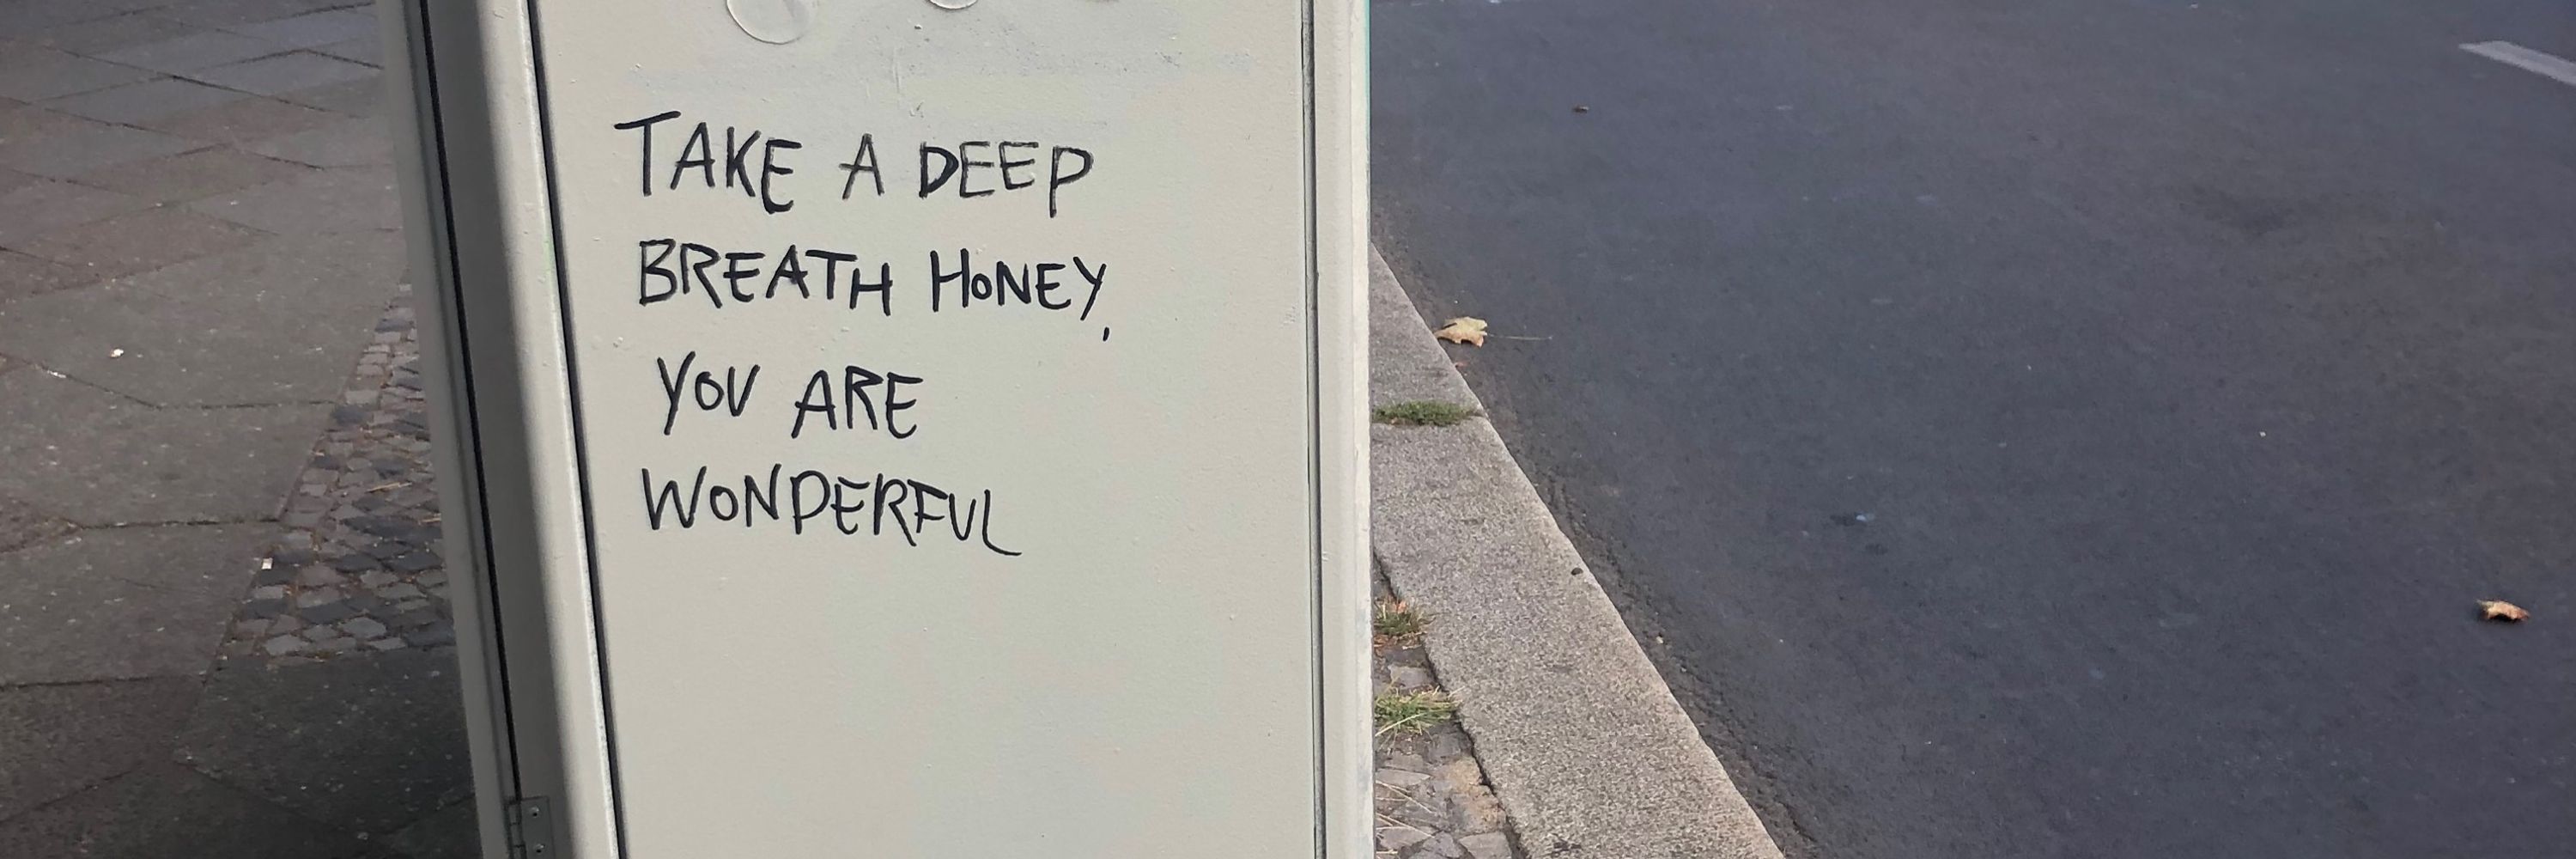 TAKE A DEEP
BREATH HONEY,
YOU ARE
WONDERFUL